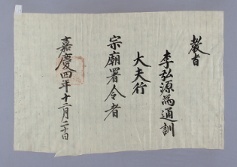 教旨
李弘源爲通訓
大夫行
宗廟署令者
嘉慶四年十二月二十日